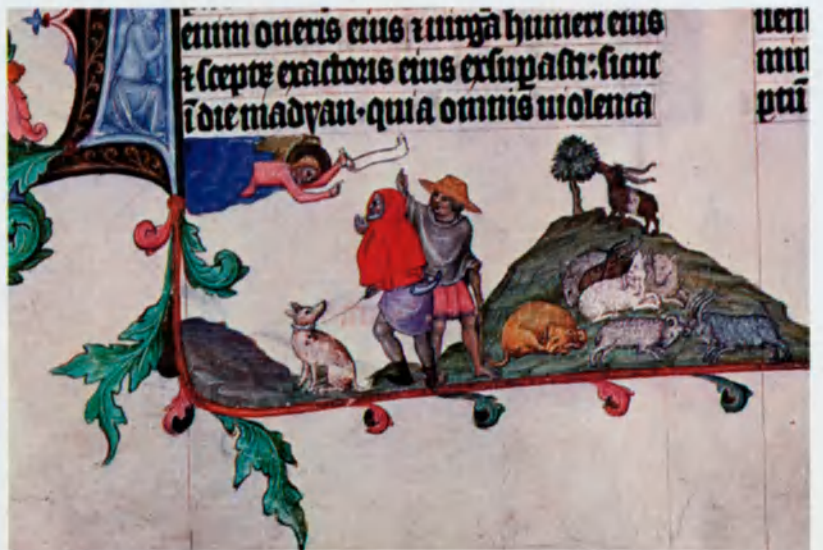 enim oneris eius ⁊ uirga humeri eius
⁊ sceptꝝ exactoris eius exsuꝑasti: sicut
ī die madyan· quia omnis uiolenta
ptū